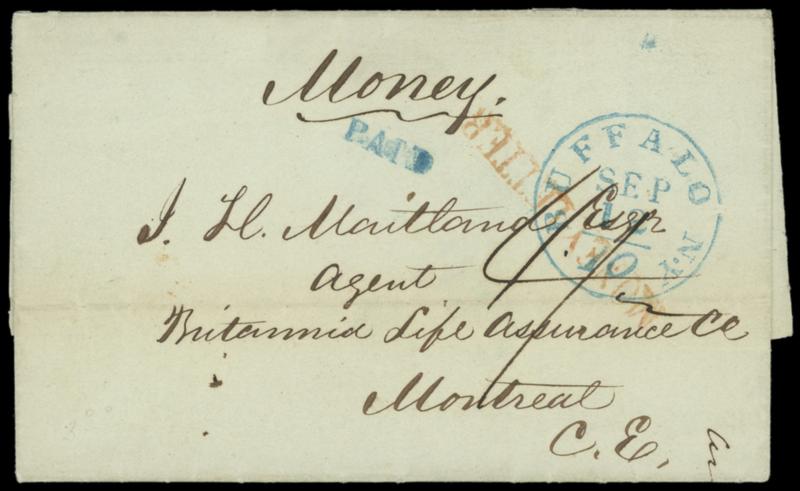 Money.
PAID
MONEY LETTER
BUFFALO N.Y.
SEP
10
J. H. Maitland Esqr
Agent
Britannia Life Assurance Co
Montreal
C.E.